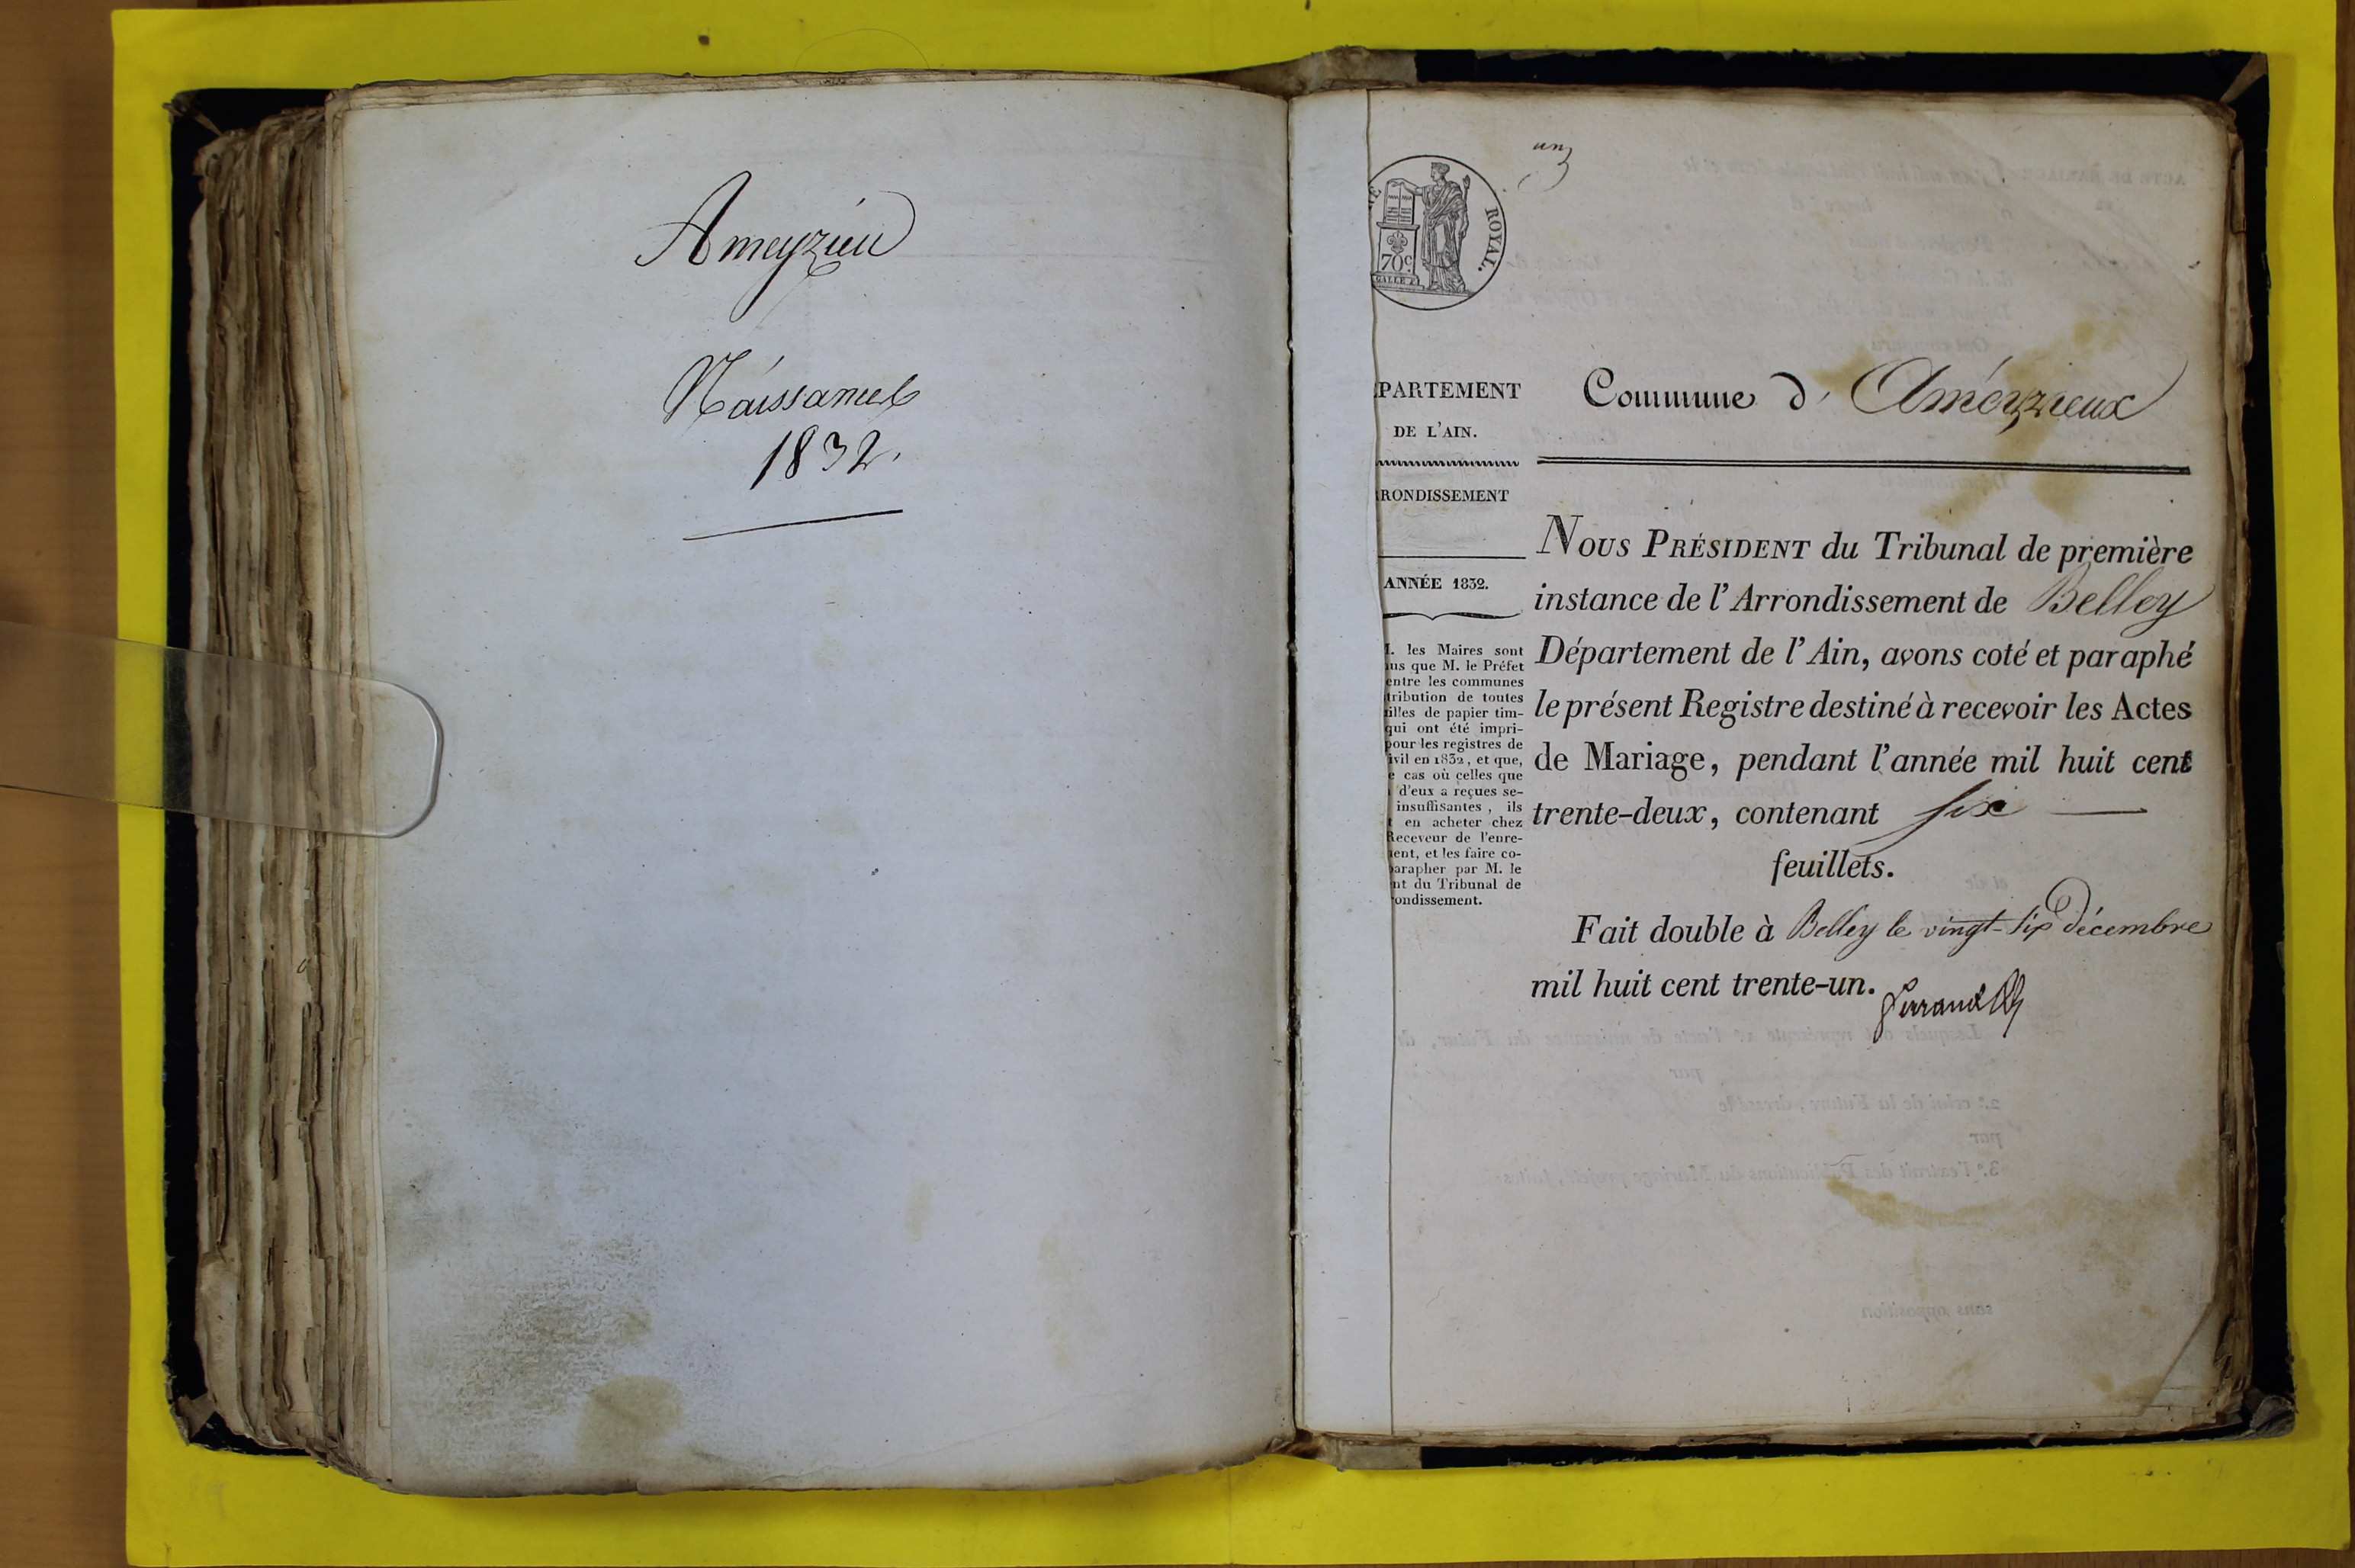 Ameyzieu
Naissances
1832.
un
ROYAL.
70c.
PARTEMENT
DE L'AIN.
RONDISSEMENT
ANNÉE 1832.
. les Maires sont
us que M. le Préfet
entre les communes
tribution de toutes
illes de papier tim-
qui ont été impri-
pour les registres de
ivil en 1832, et que,
e cas où celles que
d'eux a reçues se-
insuffisantes, ils
t en acheter chez
Receveur de l'enre-
ent, et les faire co-
arapher par M. le
nt du Tribunal de
ondissement.
Commune d'Améyzieux
NOUS PRÉSIDENT du Tribunal de première
instance de l'Arrondissement de Belley
Département de l'Ain, avons coté et paraphé
le présent Registre destiné à recevoir les Actes
de Mariage, pendant l'année mil huit cent
trente-deux, contenant six
feuillets.
Fait double à Belley le vingt-six décembre
mil huit cent trente-un.